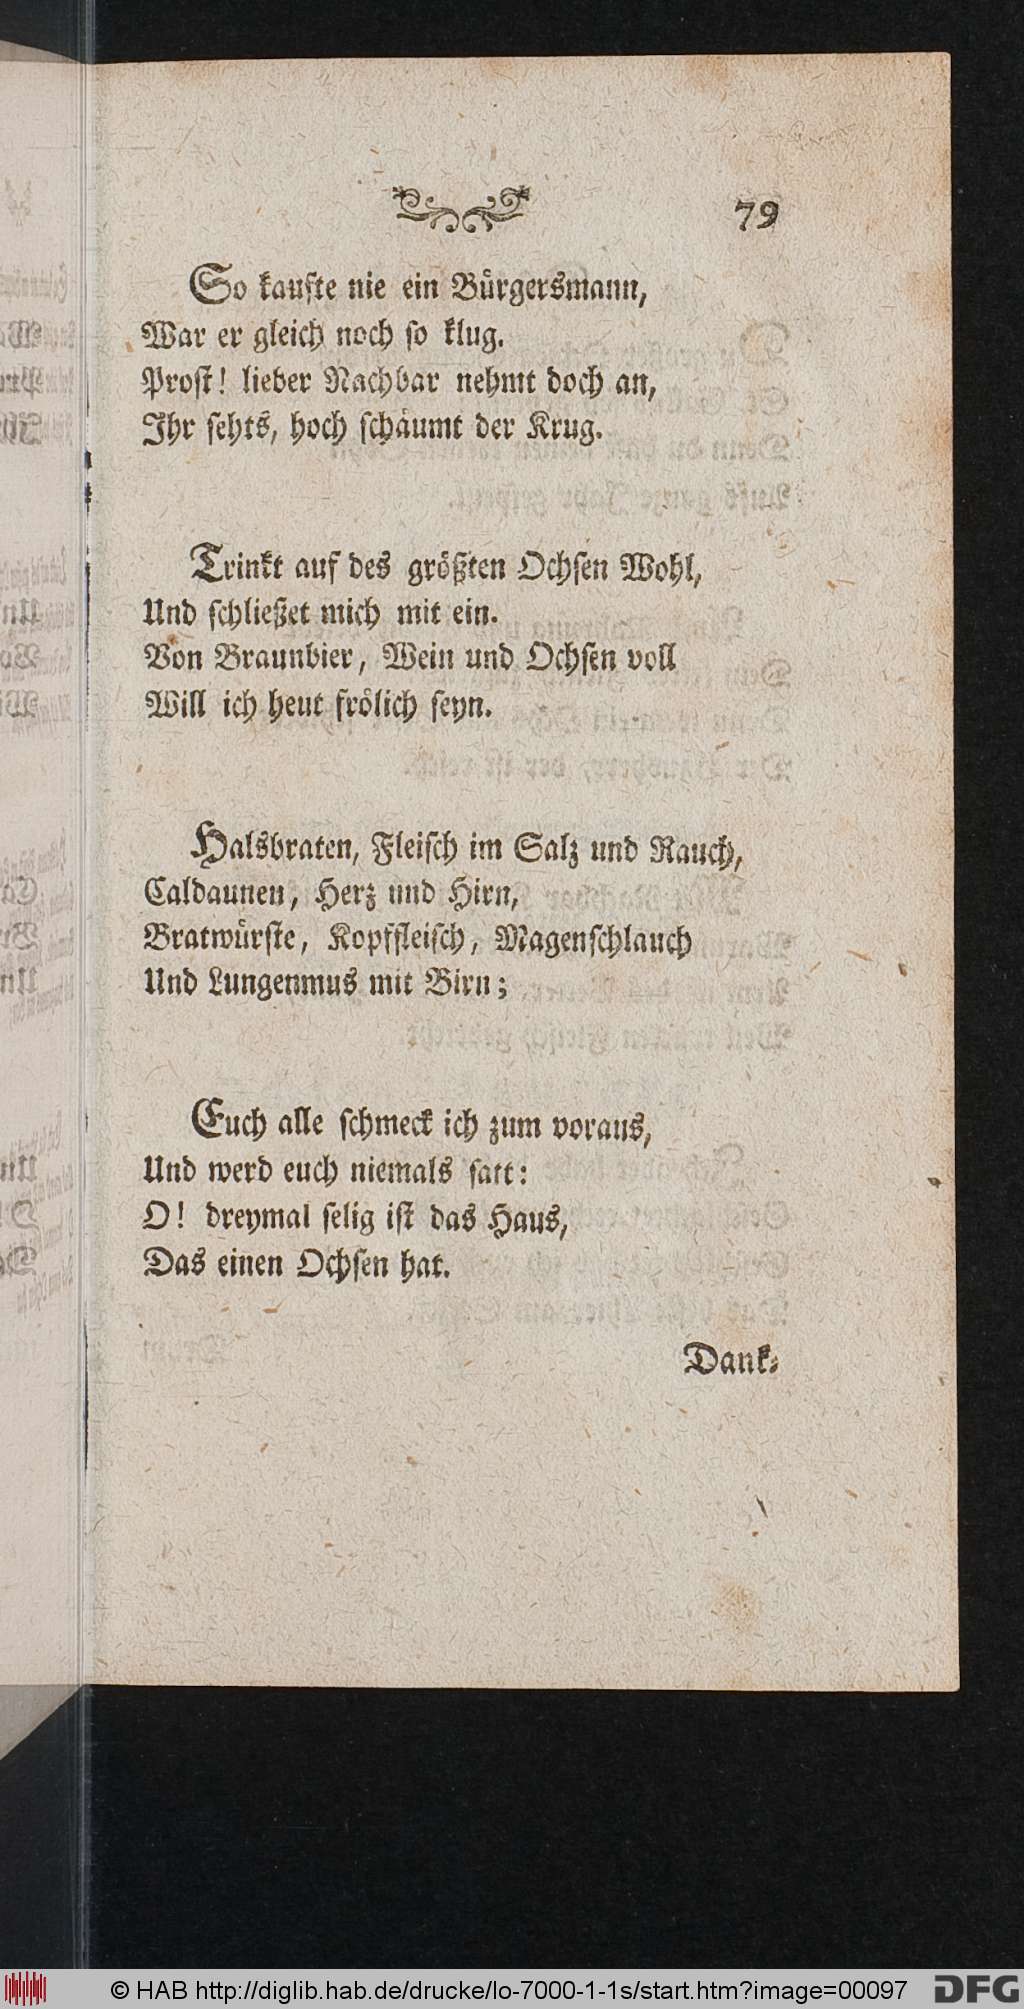 79
So kaufte nie ein Bürgersmann,
War er gleich noch so klug.
Prost! lieber Nachbar nehmt doch an,
Ihr sehts, hoch schäumt der Krug.
Trinkt auf des größten Ochsen Wohl,
Und schließet mich mit ein.
Von Braunbier, Wein und Ochsen voll
Will ich heut frölich seyn.
Halsbraten, Fleisch im Salz und Rauch,
Caldaunen, Herz und Hirn,
Bratwürste, Kopffleisch, Magenschlauch
Und Lungenmus mit Birn;
Euch alle schmeck ich zum voraus,
Und werd euch niemals satt:
O! dreymal selig ist das Haus,
Das einen Ochsen hat.
Dank-
© HAB http://diglib.hab.de/drucke/lo-7000-1-1s/start.htm?image=00097
DFG